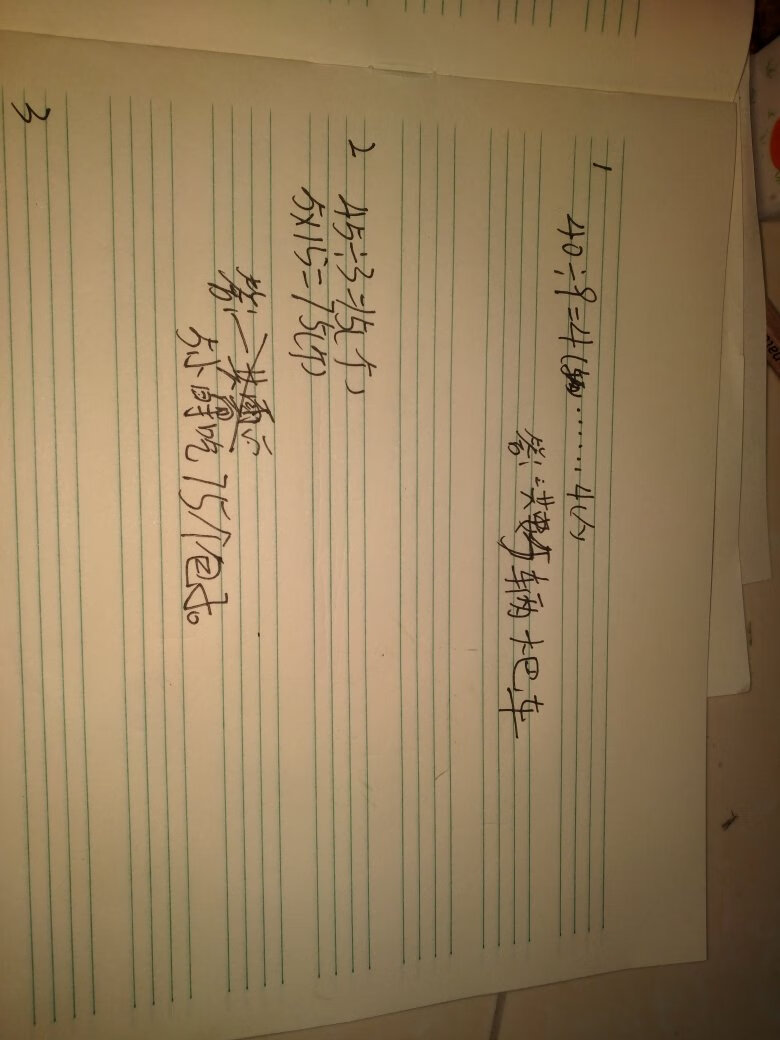 1
40÷9=4(辆)……4(人)
答:一共要5辆卡巴车
2
45÷3=15(个)
5×15=75(个)
答:一共需
5小时吃75个包子。
3